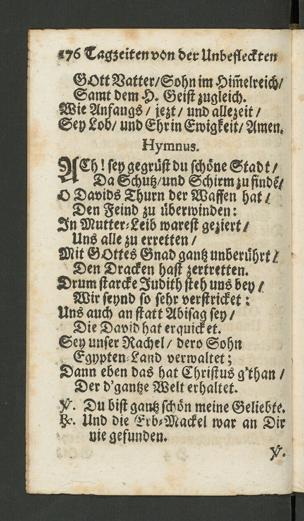 176 Tagzeiten von der Unbefleckten
GOtt Vatter/Sohn im Him̃elreich/
Samt dem H. Geist zugleich.
Wie Anfangs / jezt/ und allezeit /
Sey Lob/ und Ehr in Ewigkeit/ Amen.
Hymnus.
ACh! sey gegrüst du schöne Stadt /
Da Schutz/und Schirm zu findẽ/
O Davids Thurn der Waffen hat /
Den Feind zu überwinden:
In Mutter-Leib warest geziert /
Uns alle zu erretten /
Mit GOttes Gnad gantz unberührt /
Den Dracken hast zertretten.
Drum starcke Judith steh uns bey /
Wir seynd so sehr verstricket:
Uns auch an statt Abisag sey /
Die David hat erquicket.
Sey unser Rachel / dero Sohn
Egypten-Land verwaltet;
Dann eben das hat Christus g'than /
Der d'gantze Welt erhaltet.
℣. Du bist gantz schön meine Geliebte.
℟. Und die Erb-Mackel war an Dir
nie gefunden.
℣.